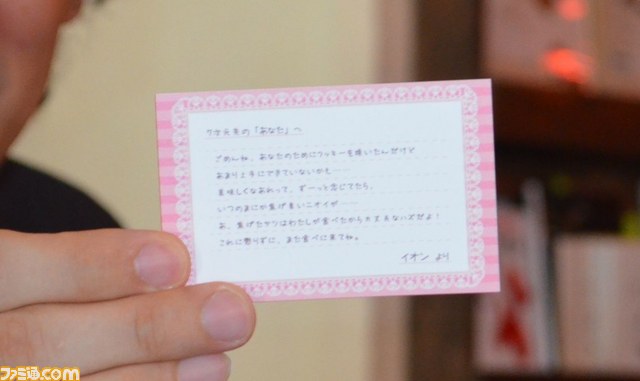 ワケ天冬の「あなた」へ
ごめんね、あなたのためにクッキーを焼いたんだけど
あまり上手にできていないかも……
美味しくなあれって、ずーっと念じてたら、
いつのまにか焦げ臭いニオイが……
あ、焦げたヤツはわたしが食べたから大丈夫なハズだよ！
これに懲りずに、また食べに来てね。
イオン より
ファミ通.com